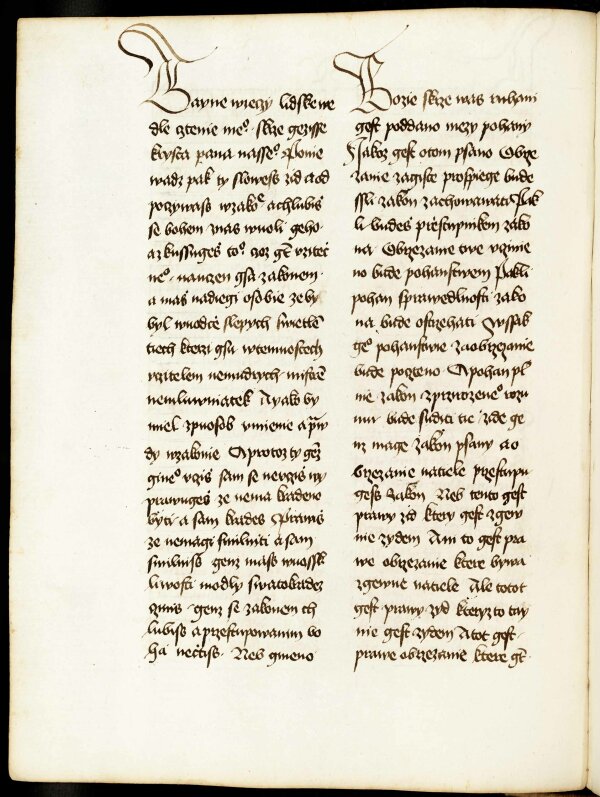 Tayne wieczy lidske we
dle cztenie me°. skrze gezisse
krysta pana nasse°. Ponie
wadz pak ty slowess zid a od
poczywass w zako° a chlubis
se bohem a nas wuoli geho
a zkussuges to°. coz gt vzitecz
ne°. nauczen gsa zakonem.
a mas nadiegi o sobie ze by
byl wuodce slepych swietle
tiech kterzi gsu w temnostech
vczitelem nemudrych mistre
nemluwniatek. A yako by
miel zpuosob vmienie a praw
dy w zakonie. A protoz ty gez
gine° vczis sam se neuczis ny
prawuges ze nema kradeno
byti a sam krades. Prawis
ze nemagi smilniti a sam
smilniss. genz mass w ossk
liwosti modly swatokradez
czinis. genz se zakonem ch
lubiss a przestupowanim bo
ha neczstiss. Neb gmeno
Bozie skrze was ruhani
gest poddano mezy pohany
Jakoz gest o tom psano. Obrze
zanie zagiste prospiege bude
ssli zakon zachowawati. Pak
li budes przestupnikem zako
na. Obrzezanie twe vczinie
no bude pohanstwem. Pakli
pohan sprawedlnosti zako
na bude ostrzehati. wssak
ge° pohanstwie za obrzezanie
bude poczteno. A pohan pl
nie zakon z przirozene° rozu
mu bude suditi tie. zde ge
nz mage zakon psany a o
brzezanie na tiele przestupu
gess zakon. Neb tento gest
prawy zid ktery gest zgew
nie zydem. Ani to gest pra
we obrzezanie ktere bywa
zgewne na tiele. Ale totot
gest prawy zyd kteryz to tay
nie gest zydem. A tot gest
prawe obrzezanie ktere gt